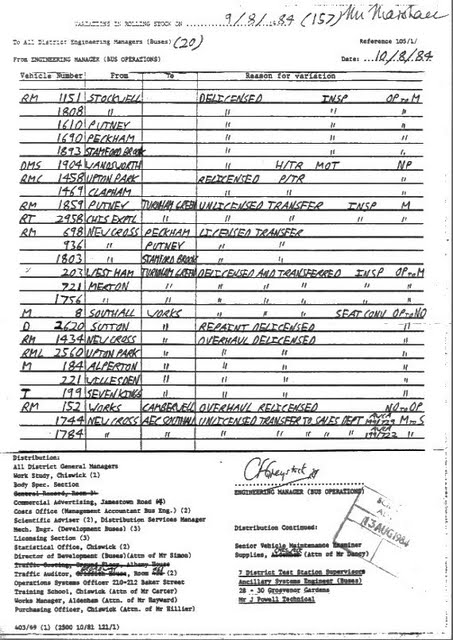 VARIATIONS IN ROLLING STOCK ON 9/8/84 (157) Mr Marshall
To All District Engineering Managers (Buses) (20) Reference 105/1/
From ENGINEERING MANAGER (BUS OPERATIONS) Date: 10/8/84
Vehicle Number From To Reason for variation
RM 1151 STOCKWELL DELICENSED INSP OP to M
1808 " " "
1610 PUTNEY " " "
1690 PECKHAM " " "
1893 STAMFORD BROOK " " "
DMS 1904 WANDSWORTH " H/TR MOT NP
RMC 1458 UPTON PARK RELICENSED P/TR
1469 CLAPHAM " "
RM 1859 PUTNEY TURNHAM GREEN UNLICENSED TRANSFER INSP M
RT 2958 CHIS EXPTL " " " " "
RM 698 NEW CROSS PECKHAM LICENSED TRANSFER
936 " PUTNEY " "
1803 " STAMFORD BROOK " "
" 203 WEST HAM TURNHAM GREEN DELICENSED AND TRANSFERRED INSP OP to M
721 MERTON " " " " "
1756 " " " " " "
M 8 SOUTHALL WORKS SEAT CONV OP to NO
D 2620 SUTTON " REPAINT DELICENSED "
RM 1434 NEW CROSS " OVERHAUL DELICENSED "
RML 2560 UPTON PARK " " " "
M 184 ALPERTON " " " "
221 WILLESDEN " " " "
T 199 SEVEN KINGS " " " "
RM 152 WORKS CAMBERWELL OVERHAUL RELICENSED NO to OP
1744 NEW CROSS AEC SOUTHALL UNLICENSED TRANSFER TO SALES DEPT M to S
1784 " " " " " " " "
Distribution:
All District General Managers
Work Study, Chiswick (1)
Body Spec. Section
General Record, Room
Commercial Advertising, Jamestown Road
Costs Office (Management Accountant Bus Eng.) (2)
Scientific Adviser (2), Distribution Services Manager
Mech. Engr. (Development Buses) (3)
Licensing Section (3)
Statistical Office, Chiswick (2)
Director of Development (Buses)(Attn of Mr Simon)
Traffic Costing, Ground Floor, Albany House
Traffic Auditor, Griffith House, Room (2)
Operations Systems Officer 210-212 Baker Street
Training School, Chiswick (Attn of Mr Carter)
Works Manager, Aldenham (Attn. of Mr Hayward)
Purchasing Officer, Chiswick (Attn. of Mr Hillier)
403/69 (1) (2500 10/81 121/1)
ENGINEERING MANAGER (BUS OPERATIONS)
Distribution Continued:
Senior Vehicle Maintenance Examiner
Supplies, (Attn of Mr Dancy)
7 District Test Station Supervisors
Ancillary Systems Engineer (Buses)
28 - 30 Grosvenor Gardens
Mr J Powell Technical
13 AUG 1984